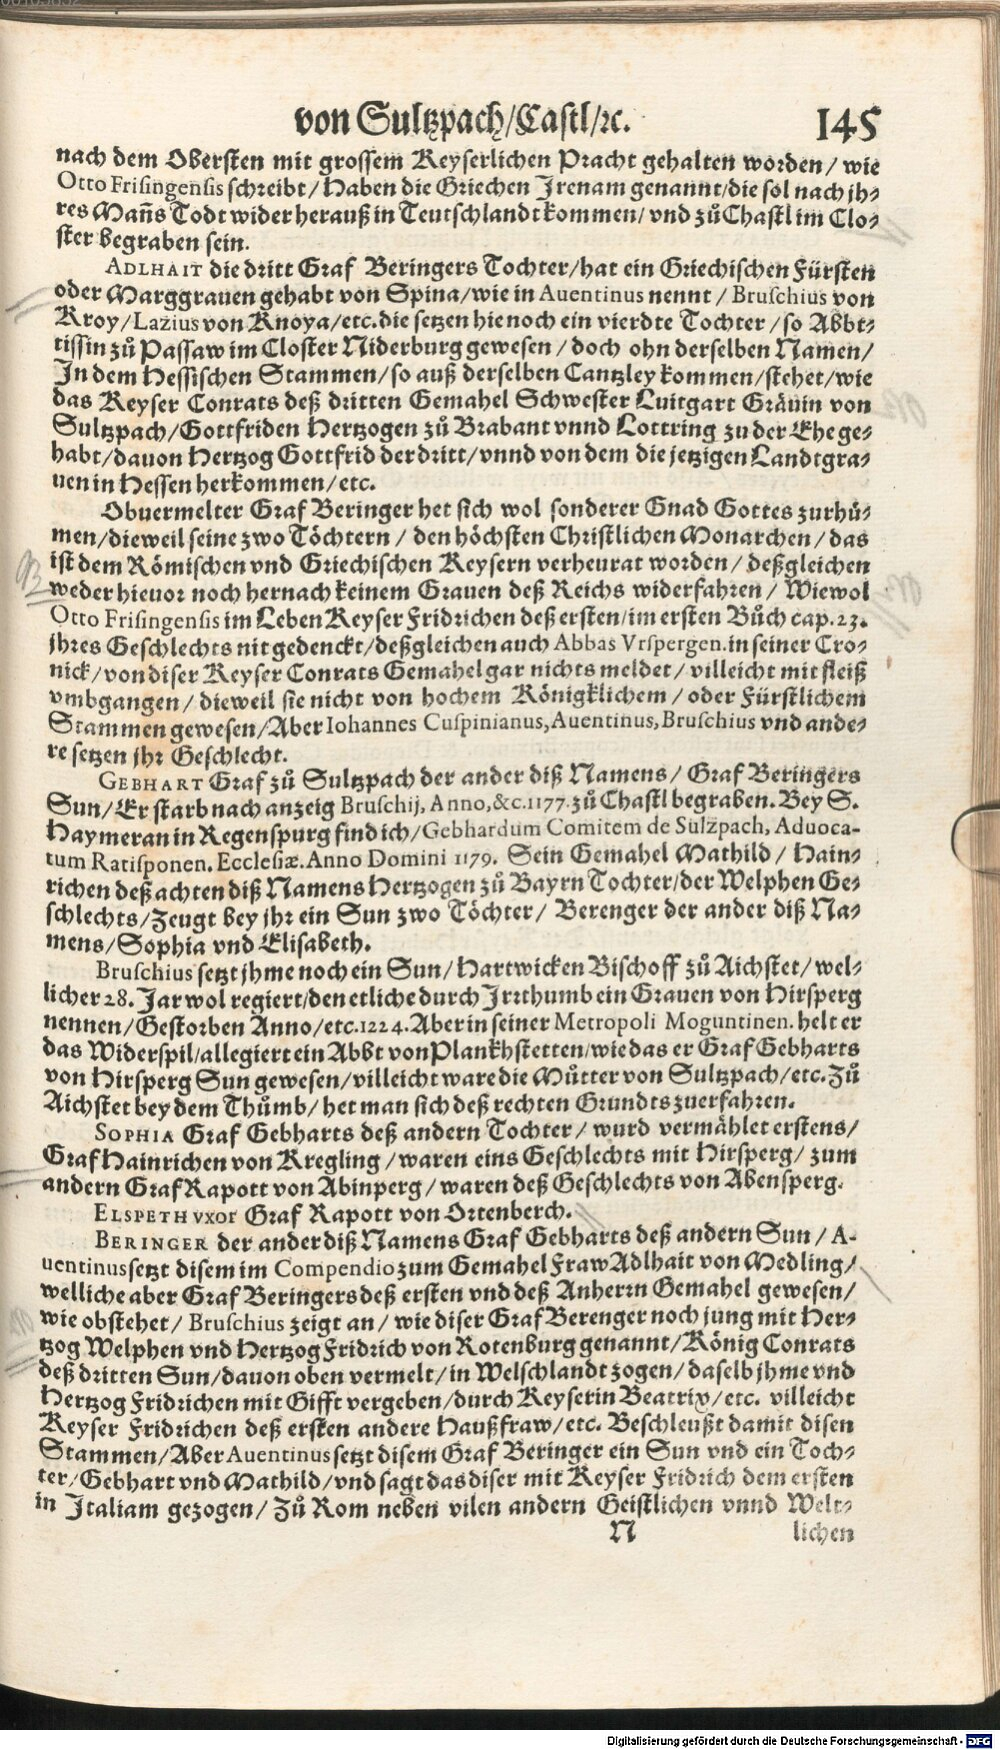 von Sultzpach/Castl/ꝛc. 145
nach dem Obersten mit grossem Keyserlichen Pracht gehalten worden/ wie
Otto Frisingensis schreibt/ Haben die Griechen Jrenam genannt/die sol nach jh⸗
res Mañs Todt wider herauß in Teutschlandt kommen/ vnd zů Chastl im Clo⸗
ster begraben sein.
ADLHAIT die dritt Graf Beringers Tochter/hat ein Griechischen Fürsten
oder Marggrauen gehabt von Spina/wie in Auentinus nennt / Bruschius von
Kroy/Lazius von Knoya/etc.die setzen hie noch ein vierdte Tochter /so Abbt⸗
tissin zů Passaw im Closter Niderburg gewesen / doch ohn derselben Namen/
Jn dem Hessischen Stammen/so auß derselben Cantzley kommen/stehet/wie
das Keyser Conrats deß dritten Gemahel Schwester Luitgart Grävin von
Sultzpach/Gottfriden Hertzogen zů Brabant vnnd Lottring zu der Ehe ge⸗
habt/dauon Hertzog Gottfrid der dritt/vnnd von dem die jetzigen Landtgra⸗
uen in Hessen herkommen/etc.
Obuermelter Graf Beringer het sich wol sonderer Gnad Gottes zurhů⸗
men/dieweil seine zwo Töchtern / den höchsten Christlichen Monarchen/das
ist dem Römischen vnd Griechischen Keysern verheurat worden/ deßgleichen
weder hieuor noch hernach keinem Grauen deß Reichs widerfahren/ Wiewol
Otto Frisingensis im Leben Keyser Fridrichen deß ersten/im ersten Bůch cap.23.
jhres Geschlechts nit gedenckt/deßgleichen auch Abbas Vrspergen.in seiner Cro⸗
nick/von diser Keyser Conrats Gemahel gar nichts meldet/villeicht mit fleiß
vmbgangen / dieweil sie nicht von hochem Königklichem / oder Fürstlichem
Stammen gewesen/Aber Iohannes Cuspinianus, Auentinus, Bruschius vnd ande⸗
re setzen jhr Geschlecht.
GEBHART Graf zů Sultzpach der ander diß Namens/ Graf Beringers
Sun/Er starb nach anzeig Bruschij, Anno,&c.1177.zů Chastl begraben. Bey S.
Haymeran in Regenspurg find ich/Gebhardum Comitem de Sulzpach, Aduoca-
tum Ratisponen. Ecclesiæ. Anno Domini 1179. Sein Gemahel Mathild/ Hain⸗
richen deß achten diß Namens Hertzogen zů Bayrn Tochter/der Welphen Ge⸗
schlechts/Zeugt bey jhr ein Sun zwo Töchter/ Berenger der ander diß Na⸗
mens/Sophia vnd Elisabeth.
Bruschius setzt jhme noch ein Sun/Hartwicken Bischoff zů Aichstet/wel⸗
licher 28. Jar wol regiert/den etliche durch Jrrthumb ein Grauen von Hirsperg
nennen/Gestorben Anno/etc.1224. Aber in seiner Metropoli Moguntinen. helt er
das Widerspil/allegiert ein Abbt von Plankhstetten/wie das er Graf Gebharts
von Hirsperg Sun gewesen/villeicht ware die Můtter von Sultzpach/etc. Zů
Aichstet bey dem Thůmb/het man sich deß rechten Grundts zuerfahren.
SOPHIA Graf Gebharts deß andern Tochter/ wurd vermählet erstens/
Graf Hainrichen von Kregling/waren eins Geschlechts mit Hirsperg/ zum
andern Graf Rapott von Abinperg/waren deß Geschlechts von Abensperg.
ELSPETH vxor Graf Rapott von Ortenberch.
BERINGER der ander diß Namens Graf Gebharts deß andern Sun/ A-
uentinus setzt disem im Compendio zum Gemahel Fraw Adlhait von Medling/
welliche aber Graf Beringers deß ersten vnd deß Anherrn Gemahel gewesen/
wie obstehet/ Bruschius zeigt an/ wie diser Graf Berenger noch jung mit Her⸗
tzog Welphen vnd Hertzog Fridrich von Rotenburg genannt/König Conrats
deß dritten Sun/dauon oben vermelt/in Welschlandt zogen/daselb jhme vnd
Hertzog Fridrichen mit Gifft vergeben/durch Keyserin Beatrix/etc. villeicht
Keyser Fridrichen deß ersten andere Haußfraw/etc. Beschleußt damit disen
Stammen/Aber Auentinus setzt disem Graf Beringer ein Sun vnd ein Toch⸗
ter/Gebhart vnd Mathild/vnd sagt das diser mit Keyser Fridrich dem ersten
in Italiam gezogen/ Zů Rom neben vilen andern Geistlichen vnnd Welt⸗
N lichen
Digitalisierung gefördert durch die Deutsche Forschungsgemeinschaft - DFG